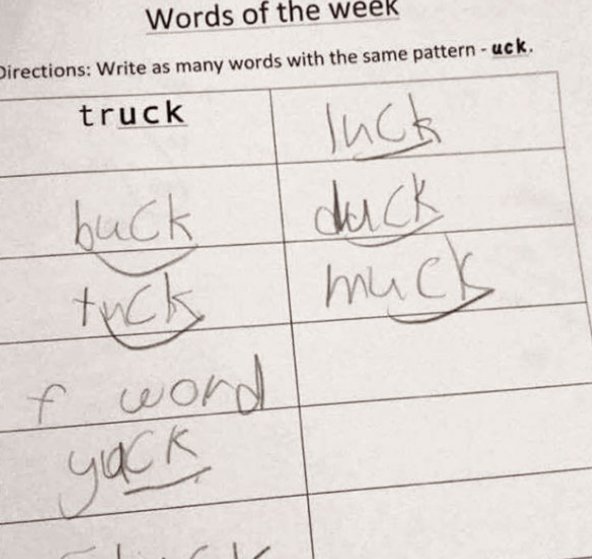 Words of the week
Directions: Write as many words with the same pattern - uck.
truck luck
buck duck
tuck muck
f word
yuck